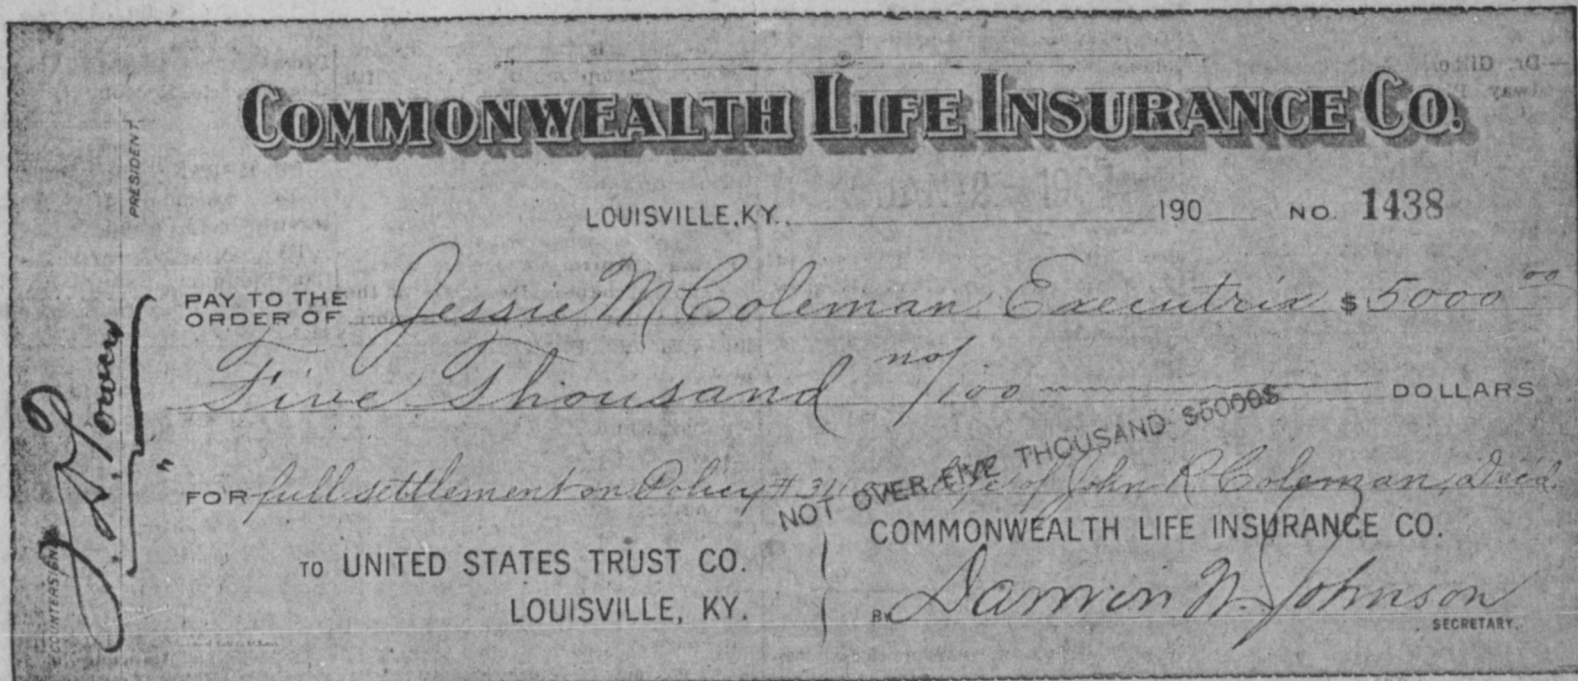 COMMONWEALTH LIFE INSURANCE CO.
LOUISVILLE, KY. 190 NO. 1438
PAY TO THE ORDER OF Jessie M. Coleman Executrix $ 5000 00
Five Thousand no/100 DOLLARS
NOT OVER FIVE THOUSAND $5000$
FOR full settlement on Policy # of John R. Coleman, Dec'd.
TO UNITED STATES TRUST CO.
LOUISVILLE, KY.
COMMONWEALTH LIFE INSURANCE CO.
BY Darwin W. Johnson
SECRETARY.
COUNTERSIGNED
J. D. Powers
PRESIDENT